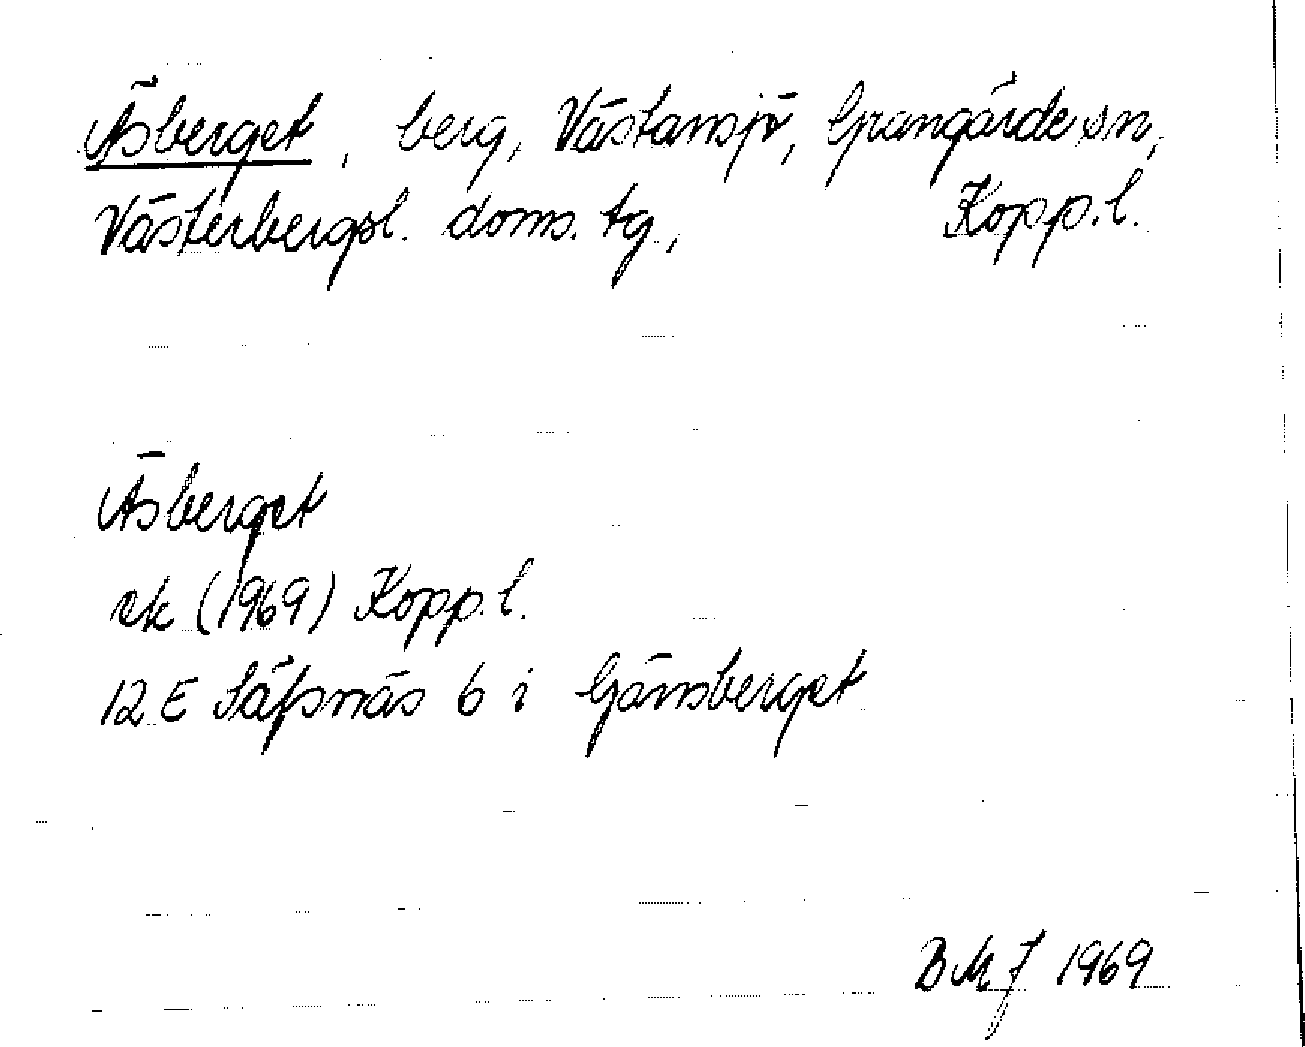 Äsberget, berg, Västansjö, Grangärde sn,
Västerbergsl. doms. tg, Kopp.l.
Äsberget
ek (1969) Kopp.l.
12 E Säfsnäs 6 i Gänsberget
BMJ 1969